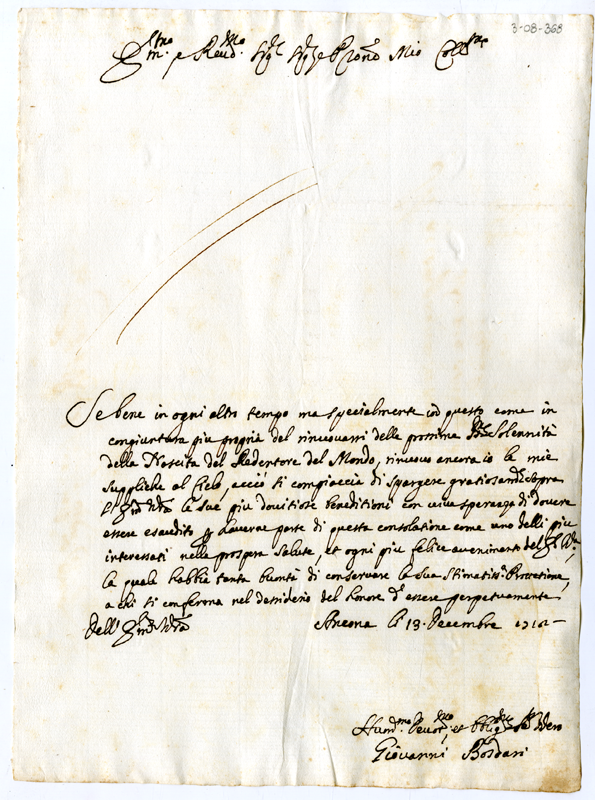 3-08-368
Em.mo e Rev.mo Sig.r Sig.r e Prone Mio Coll.mo
Se bene in ogni altro tempo ma specialmente in questo come in
congiuntura piu propria del rinouarsi della prossima Solennità
della Nascita del Redentore del Mondo, rinuouo ancora io le mie
suppliche al Cielo, acciò si compiaccia di spargere gratiosam.te sopra
l'Em.za V.ra le sue più douitiose beneditioni con viua speranza di douere
essere esaudito p hauerne parte di questa consolatione come uno delli piu
interessati nella prospera salute, et ogni piu felice auenimento dell'Em.za V.ra
la quale habbia tanta buntà di conseruare la sua Stimatiss.a Protetione,
a chi si conferma nel desiderio del honore d'essere perpetuamente
Dell' Em.za V.ra Ancona li 13 Decembre
Hum.mo Deuot.mo et Oblig.mo Se.re Vero
Giovanni Bosdari